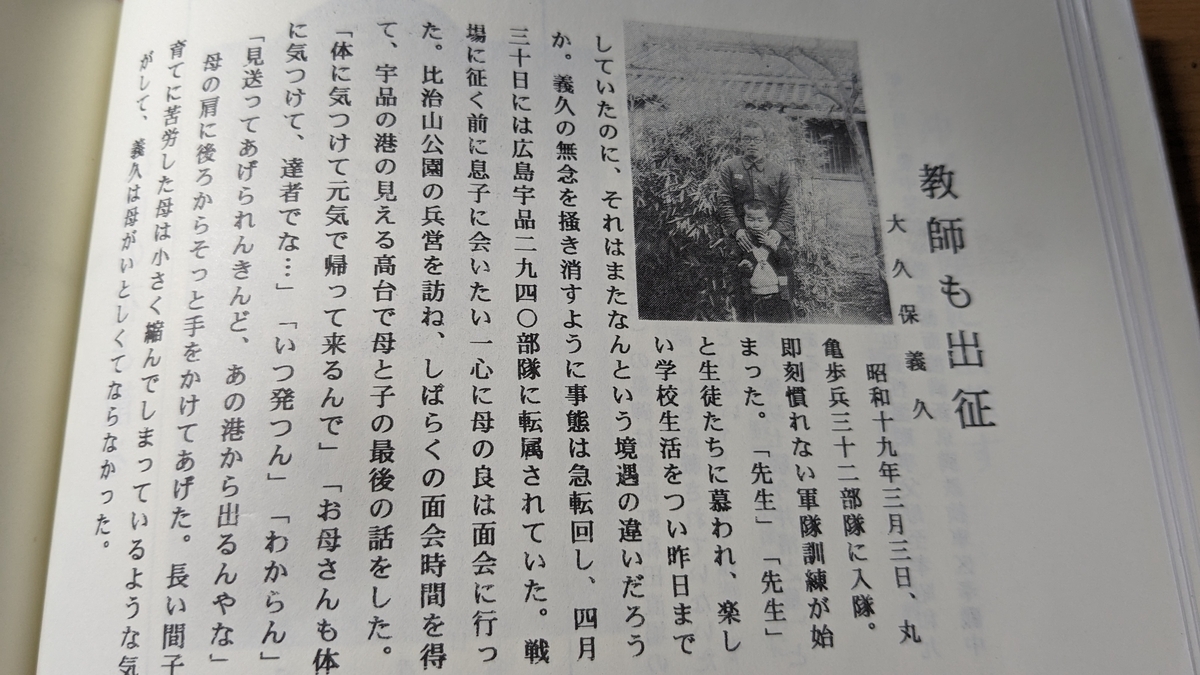 教師も出征
大久保義久
昭和十九年三月三日、丸
亀歩兵三十二部隊に入隊。
即刻慣れない軍隊訓練が始
まった。「先生」「先生」
と生徒たちに慕われ、楽し
い学校生活をつい昨日まで
していたのに、それはまたなんという境遇の違いだろう
か。義久の無念を掻き消すように事態は急転回し、四月
三十日には広島宇品二九四〇部隊に転属されていた。戦
場に征く前に息子に会いたい一心に母の良は面会に行っ
た。比治山公園の兵営を訪ね、しばらくの面会時間を得
て、宇品の港の見える高台で母と子の最後の話をした。
「体に気つけて元気で帰って来るんで」「お母さんも体
に気つけて、達者でな…」「いつ発つん」「わからん」
「見送ってあげられんきんど、あの港から出るんやな」
母の肩に後ろからそっと手をかけてあげた。長い間子
育てに苦労した母は小さく縮んでしまっているような気
がして、義久は母がいとしくてならなかった。